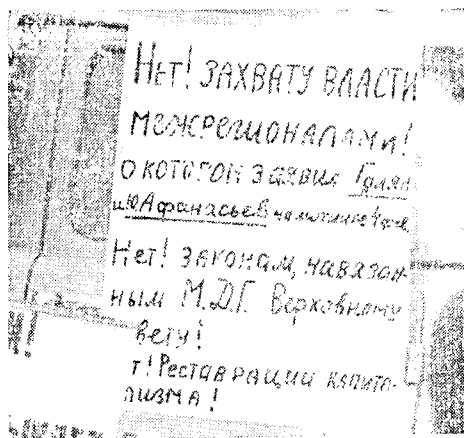 НЕТ! ЗАХВАТУ ВЛАСТИ
МЕЖРЕГИОНАЛАМИ!
О КОТОРОМ ЗАЯВИЛ
и Ю.Афанасьев на митинге
Нет! законам, навязан-
ным М.Д.Г. Верховному
вету!
т! Реставрации капита-
лизма!